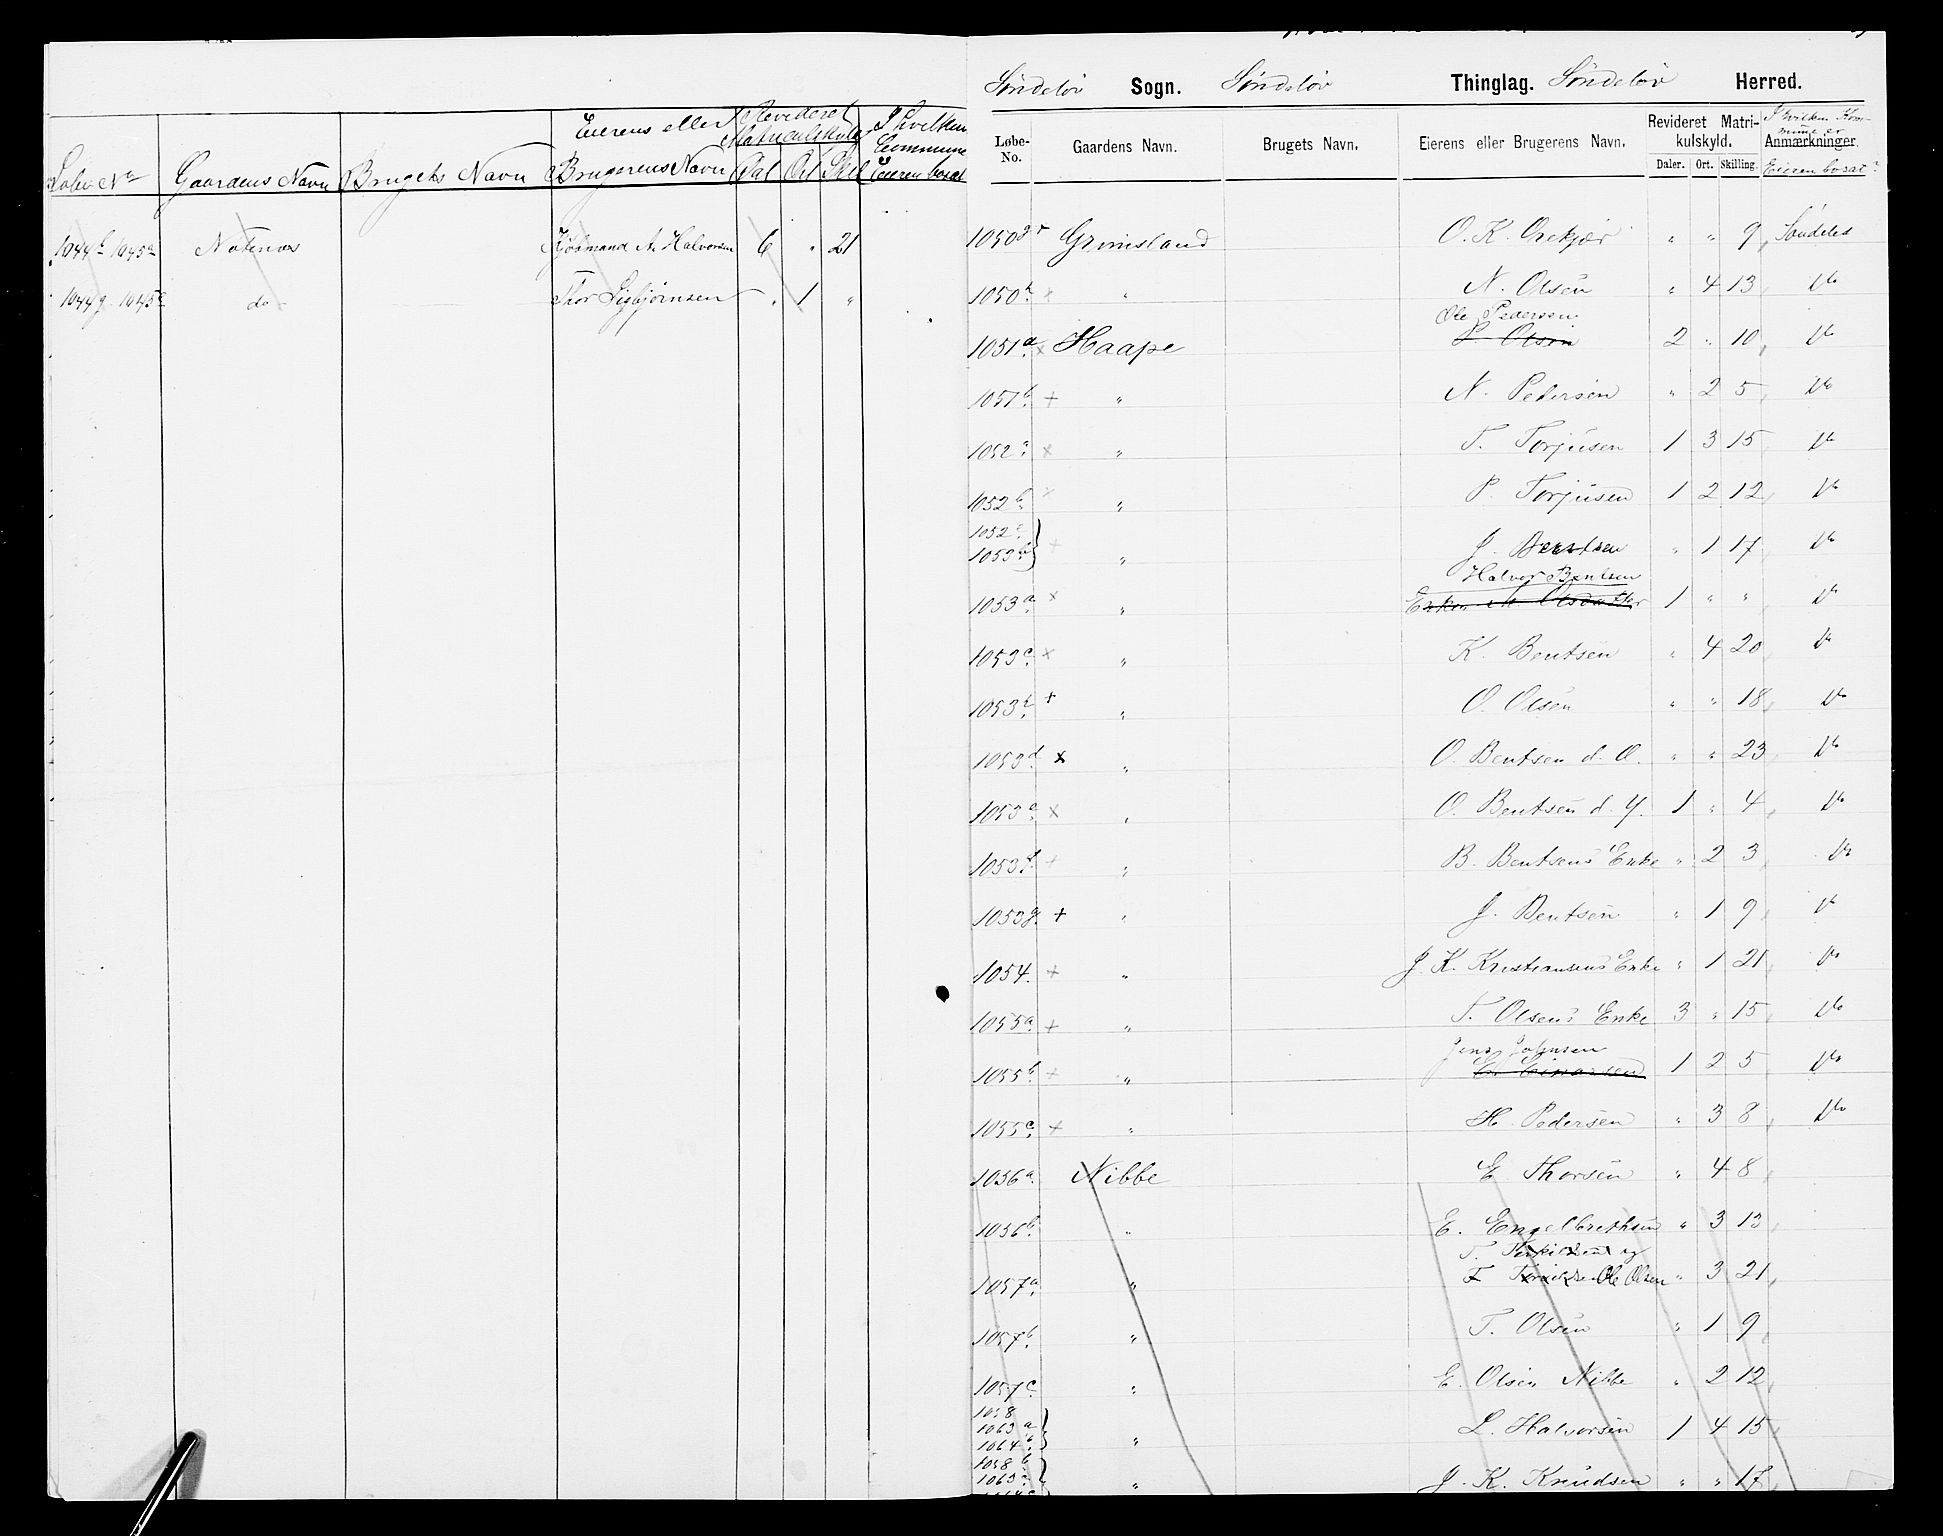 Løbe No Gaardens Navn Brugets Navn Eierens eller Brugerens Navn Revideret Matriculskyld Dal Ort Skil I hvilken Commune er Eieren bosat
1044 1045a Notenæs A. Halvorsen 6 " 21
1044g 1045c do Thor Sigbjørnsen " 1 "
Søndeløv Sogn. Søndeløv Thinglag. Søndeløv Herred.
Løbe-No. Gaardens Navn. Brugets Navn. Eierens eller Brugerens Navn. Revideret Matrikulskyld. Daler. Ort. Skilling. I hvilken Kommune er Anmærkninger. Eieren bosat?
1050g Grimsland O. K. " " 9 Søndeled
1050h × " N. Olsen " 4 13 Do
Ole Pedersen
1051a × Haape P. Olsen 2 " 10 Do
1051b + " N. Pedersen " 2 5 Do
1052a × " T. Torjusen 1 3 15 Do
1052b × " P. Torjusen 1 2 12 Do
1052c
1053b } + " J. Bentsen " 1 17 Do
Halvor Bentsen
1053a × " Enken Olsdatter 1 " " Do
1053c × " K. Bentsen " 4 20 Do
1053 + " O. Olsen " " 18 Do
1053d × " O. Bentsen d. Æ. " " 23 Do
1053e × " O. Bentsen d. Y. 1 " 4 Do
1053f + " B. Bentsens Enke " 2 3 Do
1053g + " J. Bentsen " 1 9 Do
1054. + " J. K. Kristiansens Enke " 1 21 Do
1055a + " T. Olsens Enke 3 " 15 Do
Jens Johnsen
1055b + " 1 2 5 Do
1055c + " H. Pedersen " 3 8 Do
1056a Nibbe E. Thorsen " 4 8
1056b " E. Engelbrethsen " 3 13
T. Terkildsen og
1057a " Ole Olsen " 3 21
1057b " T. Olsen " 1 9
1057c " E. Olsen Nibbe " 2 12
1058
1063a
1064b } " L. Halvorsen 1 4 15
1058b
1063 } " J. K. Knudsen " " 17